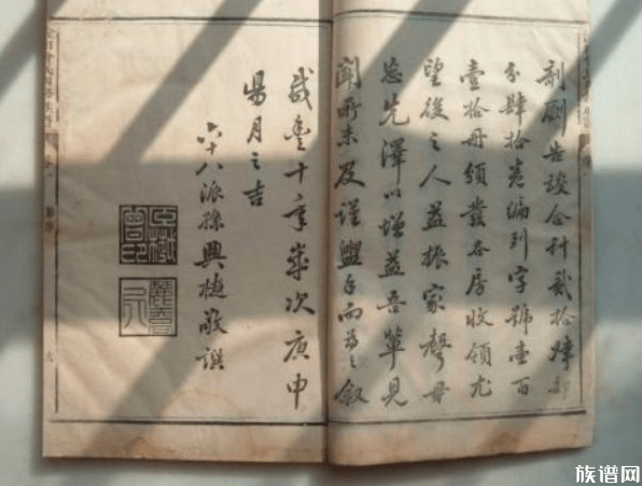 剞劂告竣合計貳拾肆部
分肆拾卷編列字號壹百
壹拾冊頒發各房收領尤
望後之人益振家聲毋
忘先澤以增益吾輩見
聞所未及謹盥手而為之敘
咸豐十年歲次庚申
陽月之吉
六十八派孫興樾敬譔
族谱网